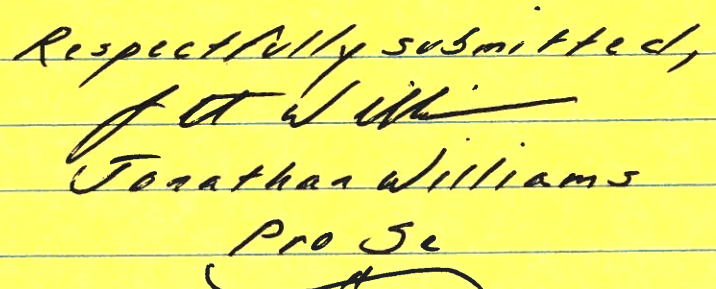 Respectfully submitted,
Jonathan Williams
Pro Se